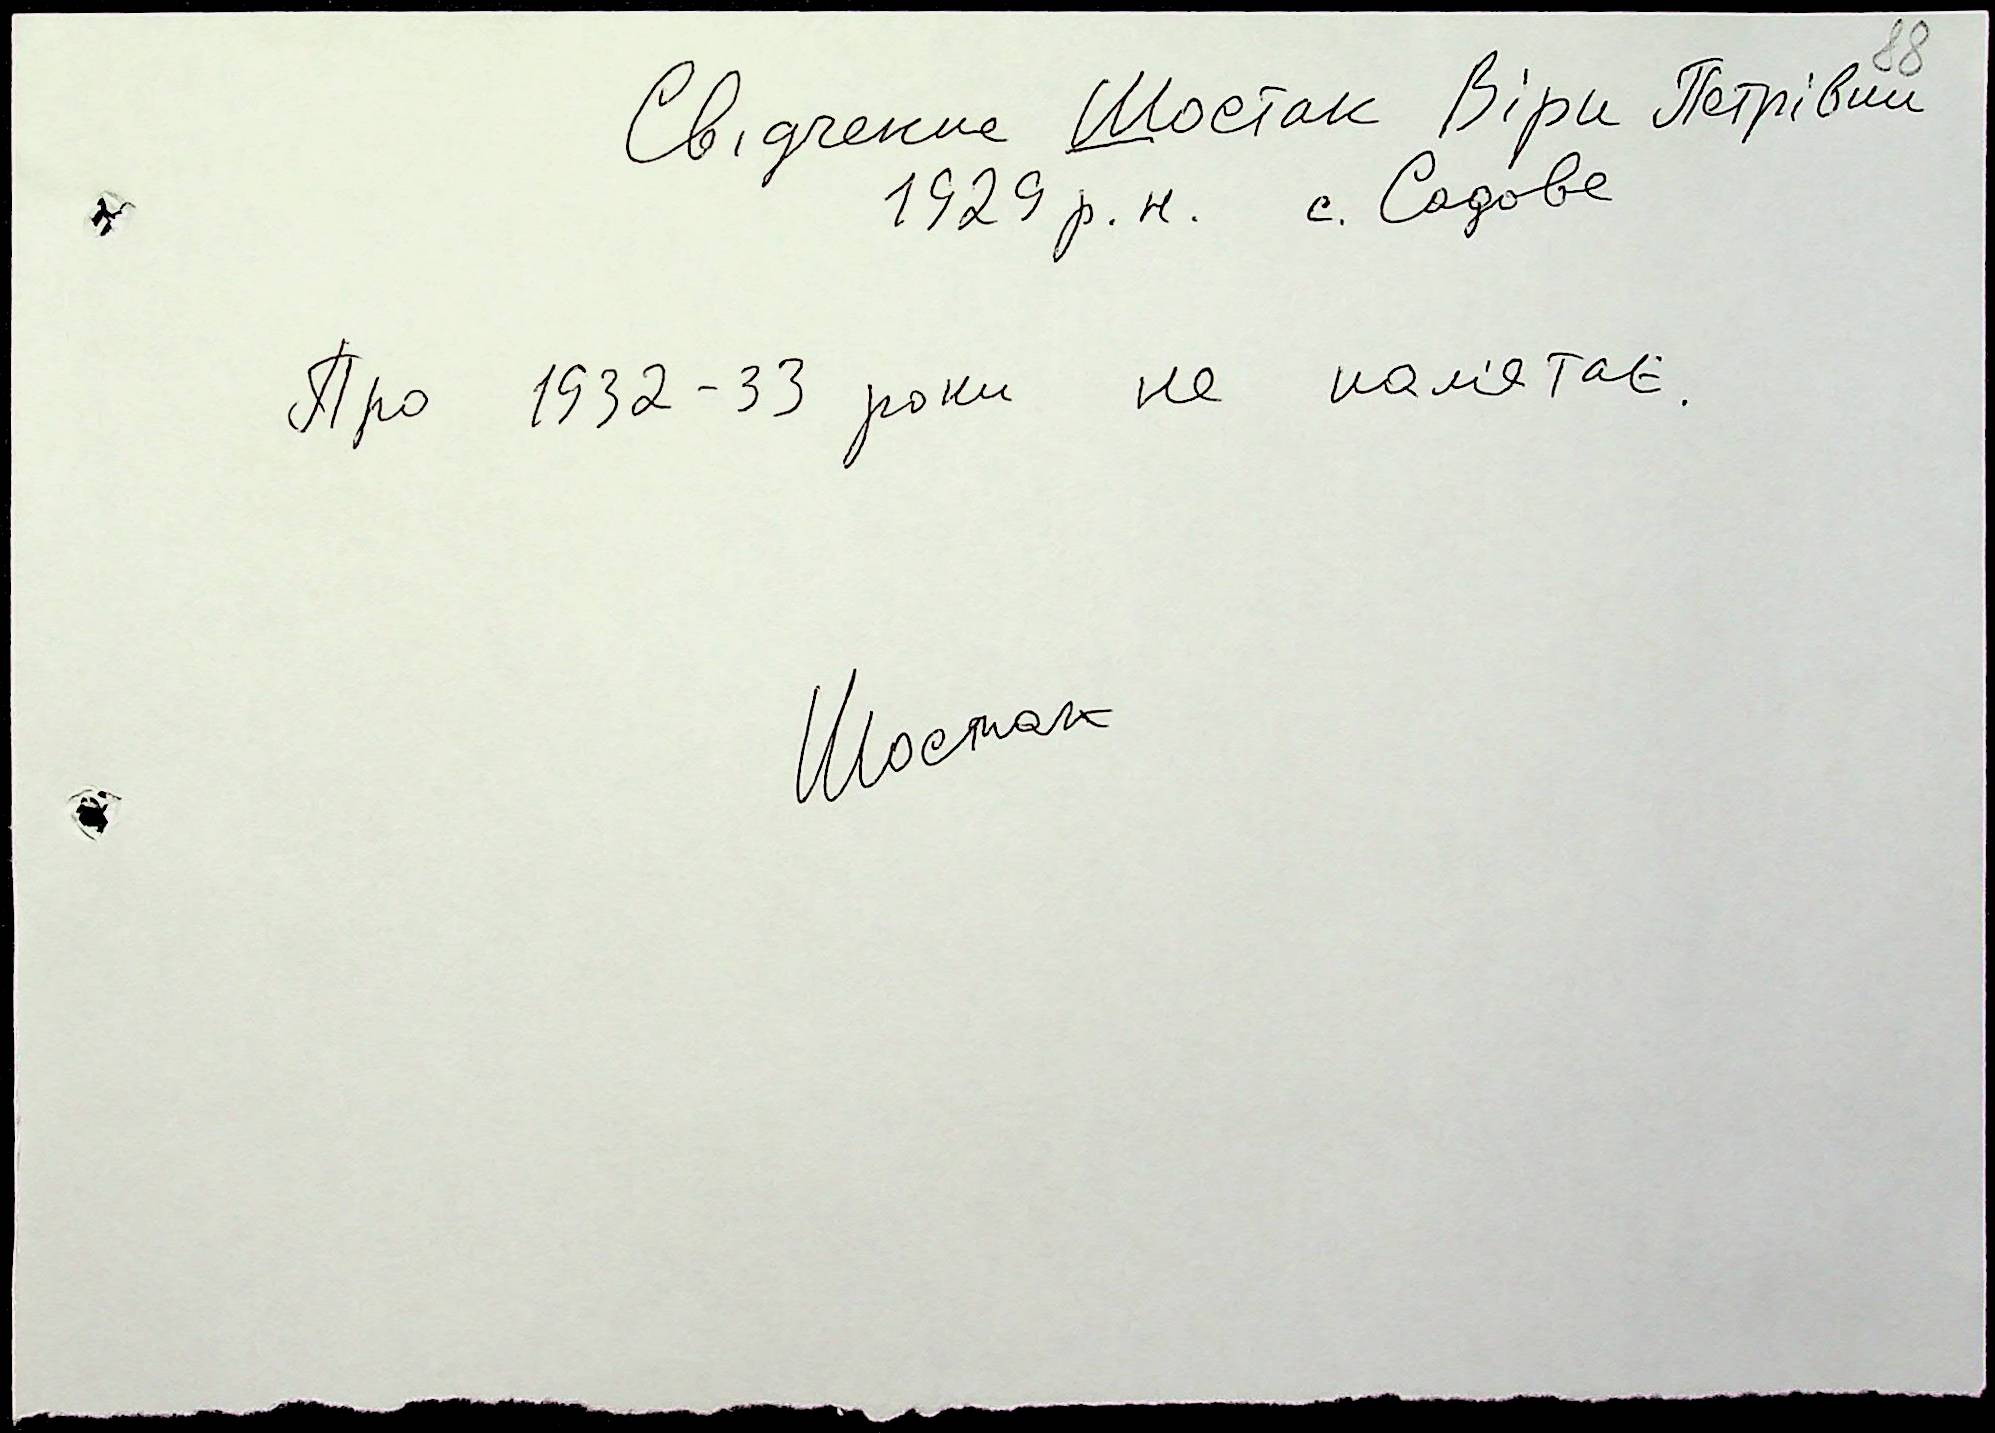 88
Свідчення Шостак Віри Петрівни
1929 р. н. с. Садове
Про 1932-33 роки не пам'ятає.
Шостак